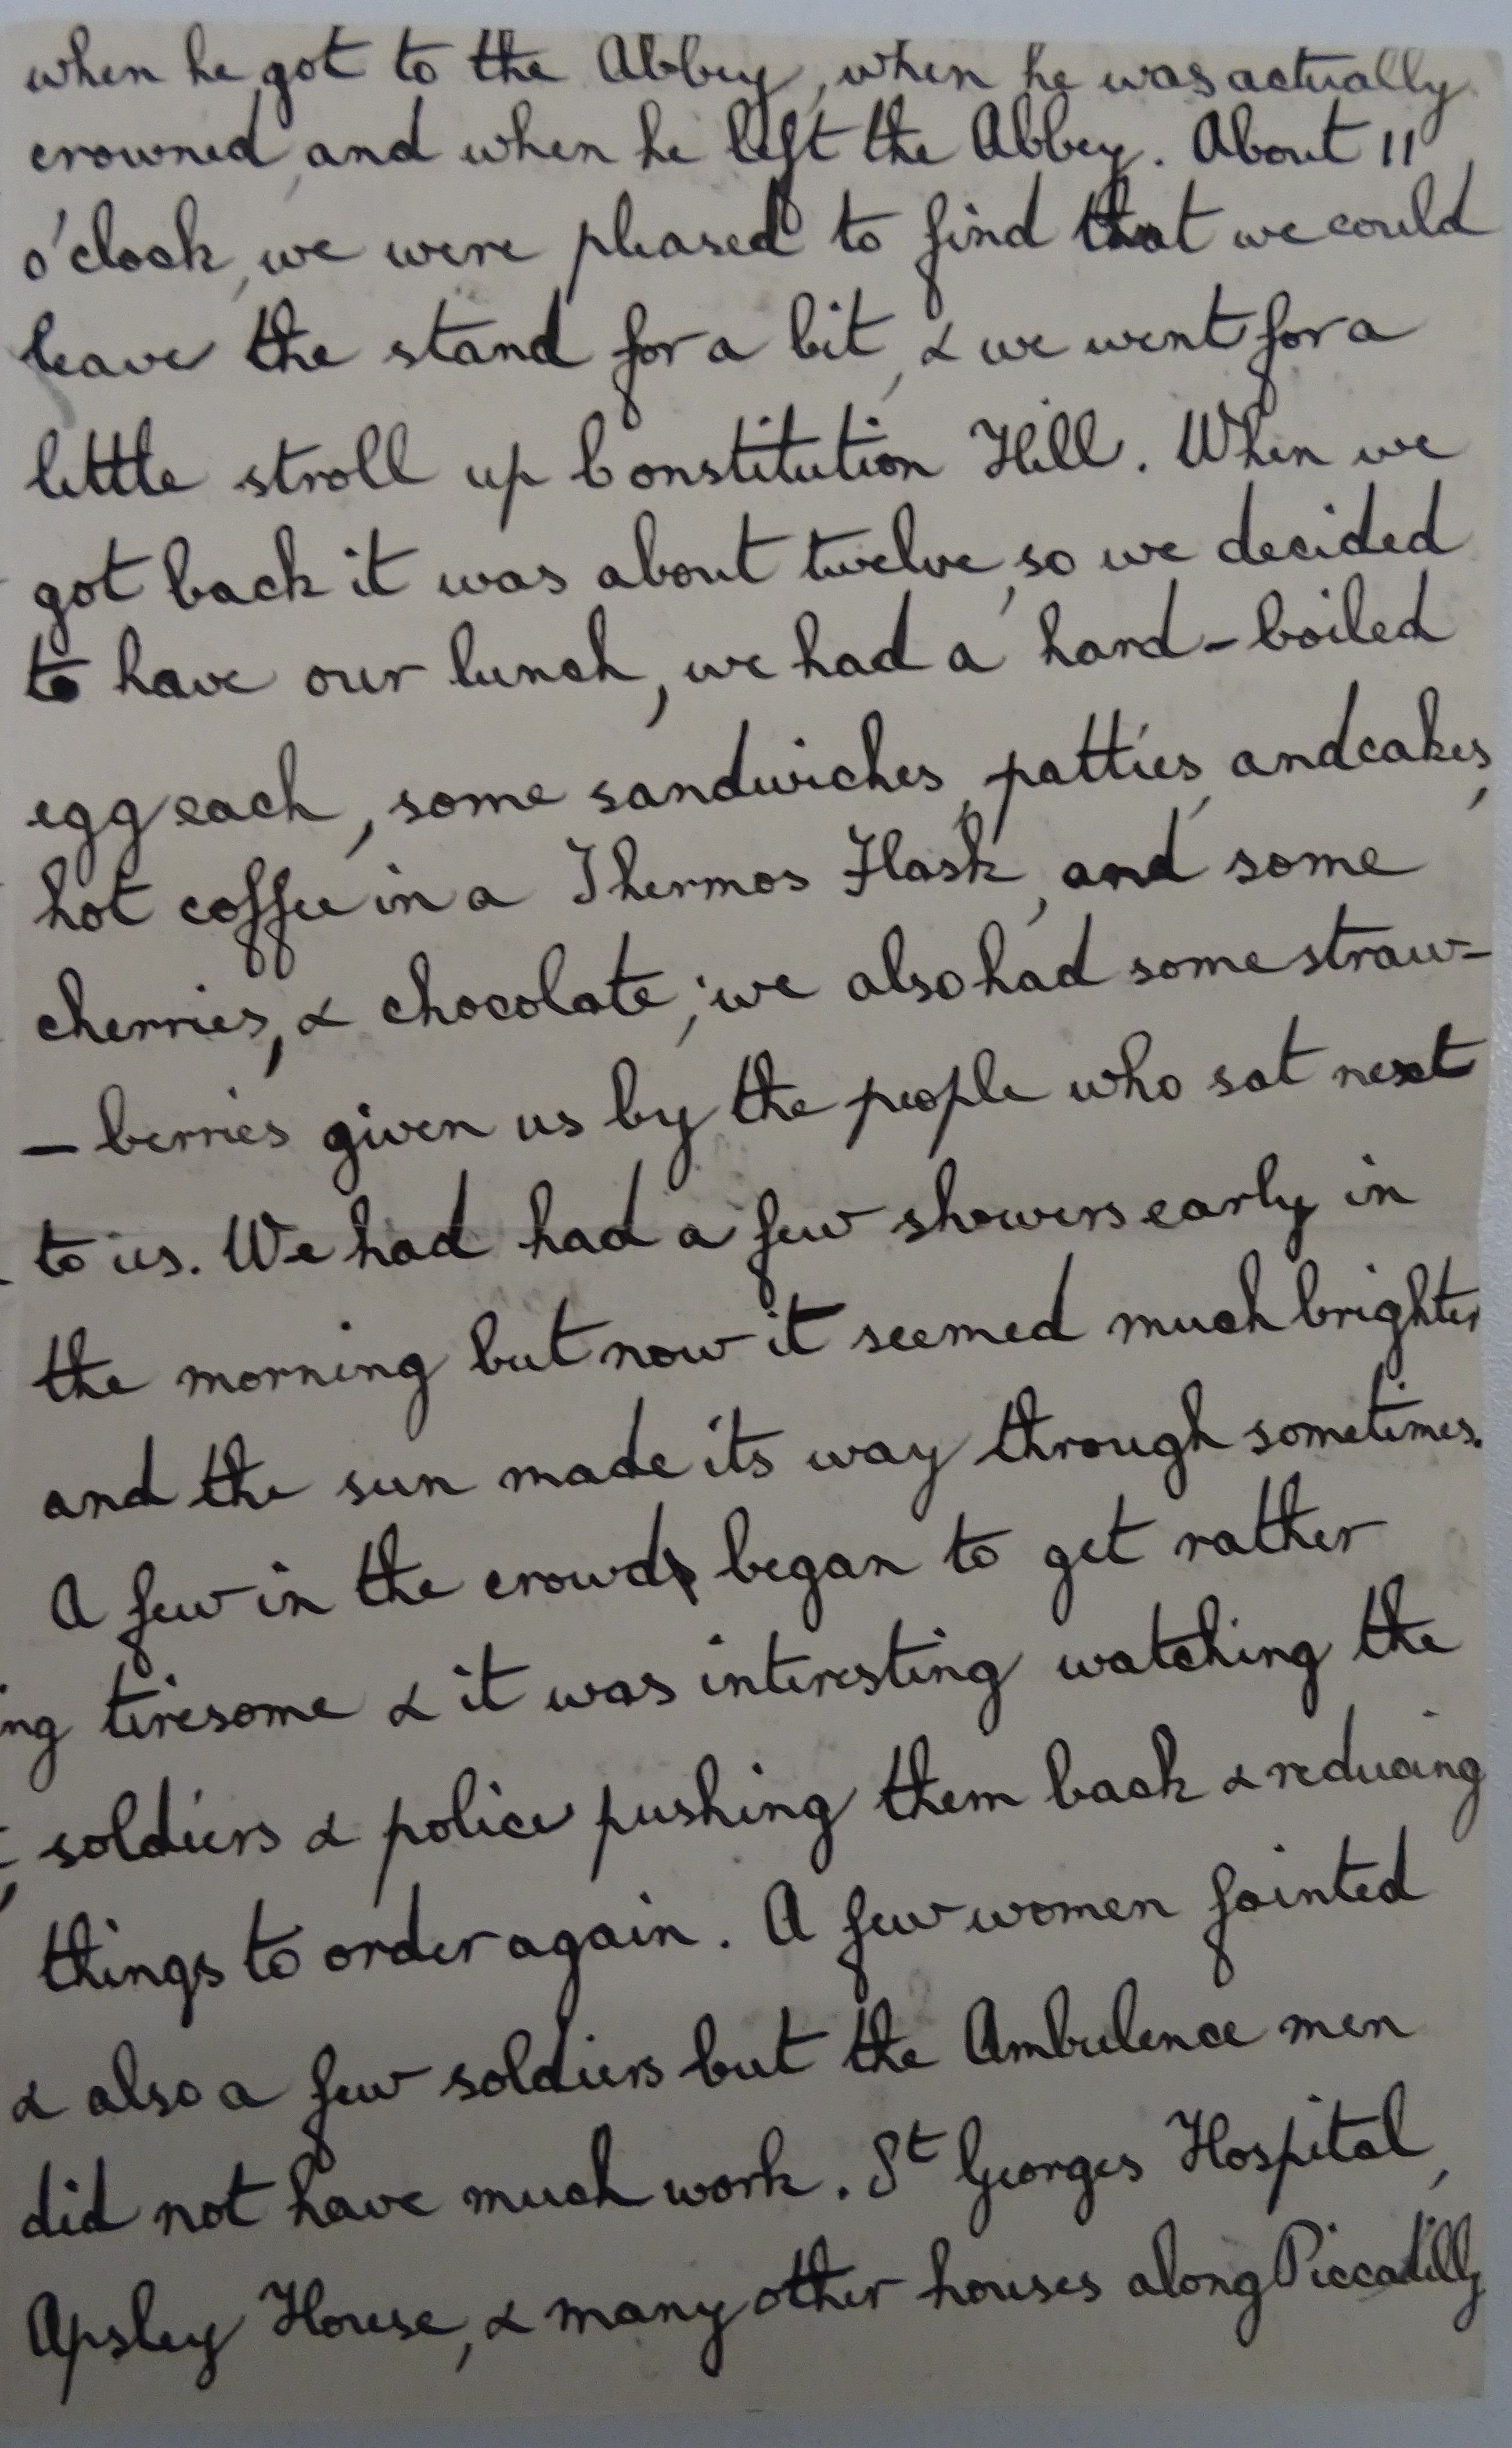 when he got to the Abbey, when he was actually
crowned, and when he left the Abbey. About 11
o'clock, we were pleased to find that we could
leave the stand for a bit, & we went for a
little stroll up Constitution Hill. When we
got back it was about twelve, so we decided
to have our lunch, we had a hard-boiled
egg each, some sandwiches, patties, and cakes,
hot coffee in a Thermos Flask, and some
cherries, & chocolate; we also had some straw-
-berries given us by the people who sat next
to us. We had had a few showers early in
the morning but now it seemed much brighter
and the sun made its way through sometimes.
A few in the crowd began to get rather
ng tiresome & it was interesting watching the
soldiers & police pushing them back & reducing
things to order again. A few women fainted
& also a few soldiers but the Ambulence men
did not have much work. St Georges Hospital,
Apsley House, & many other houses along Piccadilly